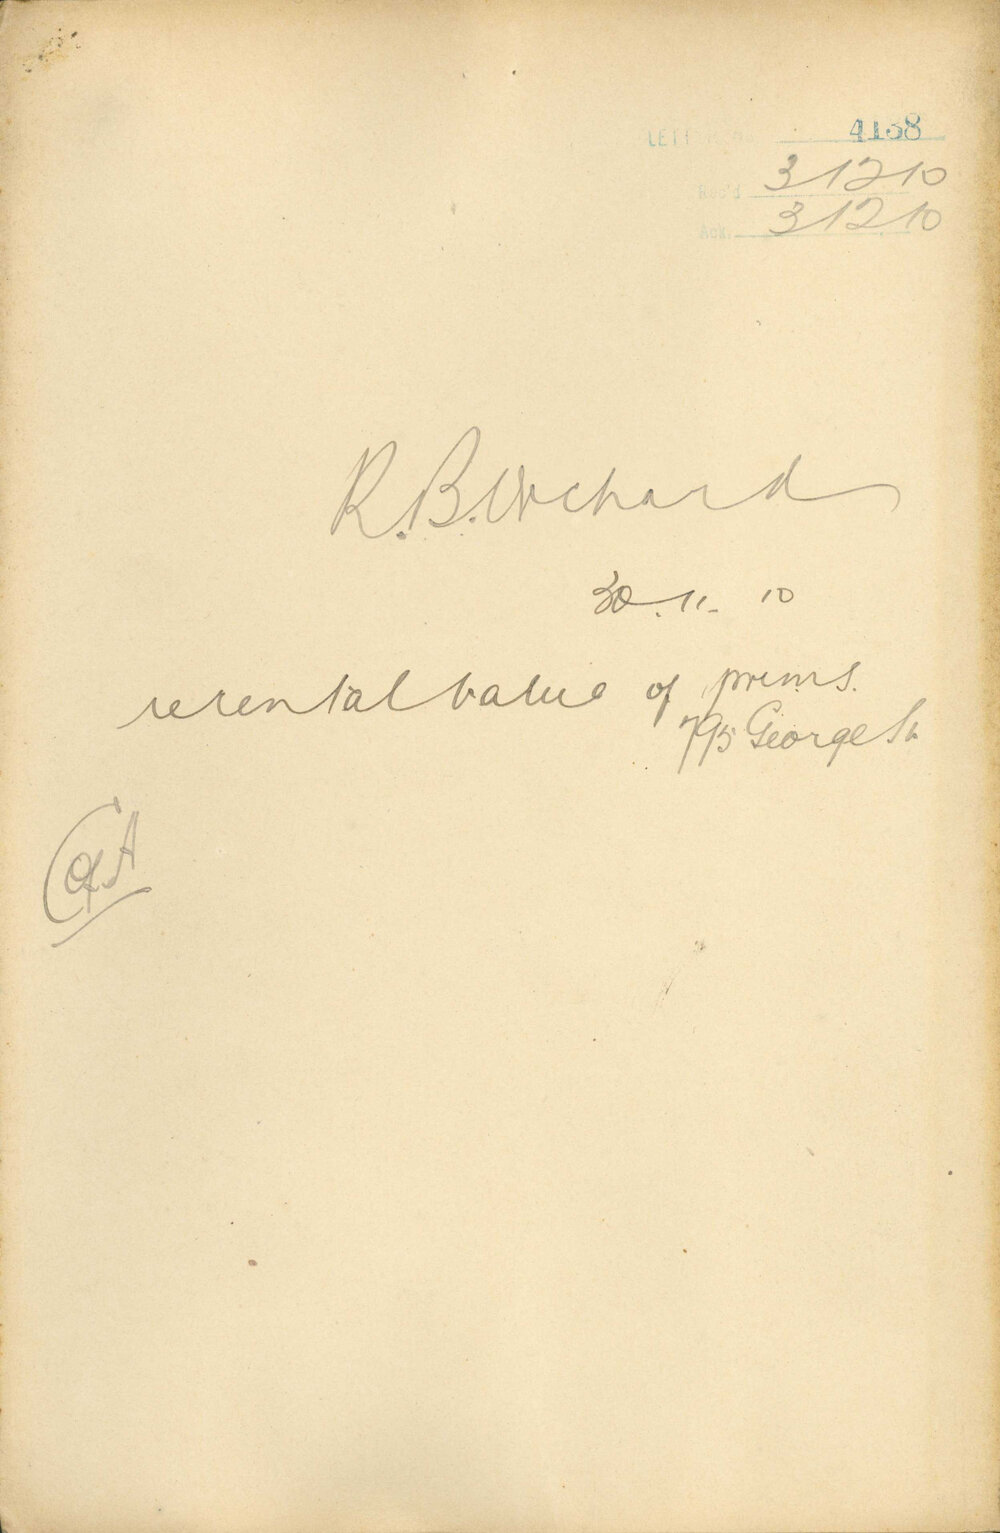 LETT 4138
Rec'd 3 12 10
Ack. 3 12 10
R. B. Orchard
30. 11. 10
re rental value of prems.
795 George St
C of A